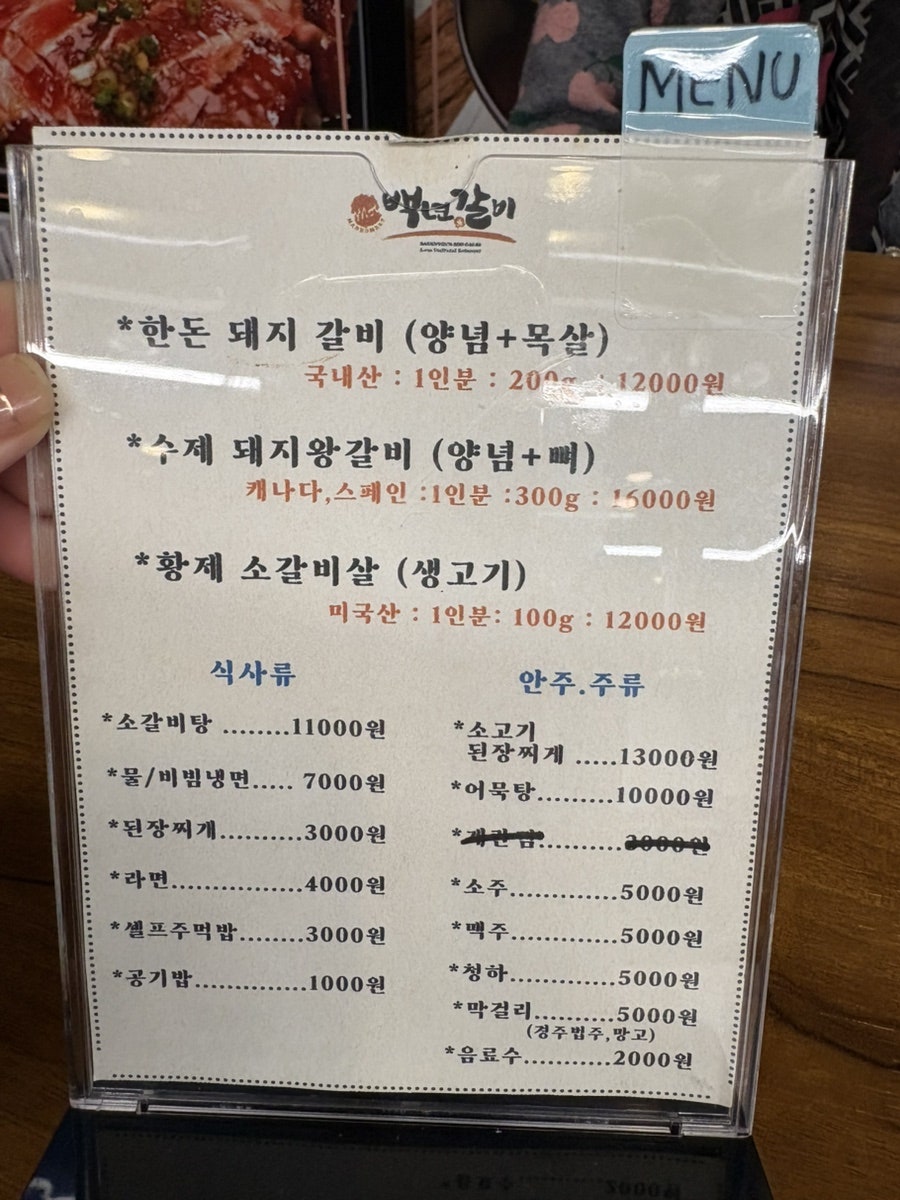 MENU
백년갈비
*한돈 돼지 갈비 (양념+목살)
국내산 : 1인분 : 200g : 12000원
*수제 돼지왕갈비 (양념+뼈)
캐나다,스페인 :1인분 :300g : 16000원
*황제 소갈비살 (생고기)
미국산 : 1인분: 100g : 12000원
식사류
*소갈비탕 ........11000원
*물/비빔냉면..... 7000원
*된장찌개..........3000원
*라면................4000원
*셀프주먹밥........3000원
*공기밥..............1000원
안주.주류
*소고기
된장찌게 .....13000원
*어묵탕.........10000원
*계란찜..........3000원
*소주.............5000원
*맥주.............5000원
*청하.............5000원
*막걸리..........5000원
(경주법주,망고)
*음료수..........2000원